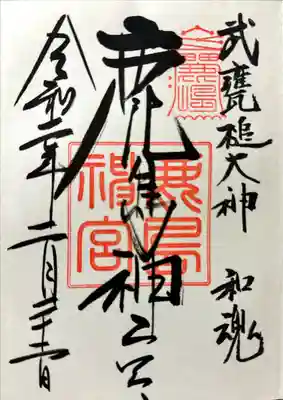 武甕槌大神 和魂
鹿島神宮
鹿島
神宮
令和二年二月